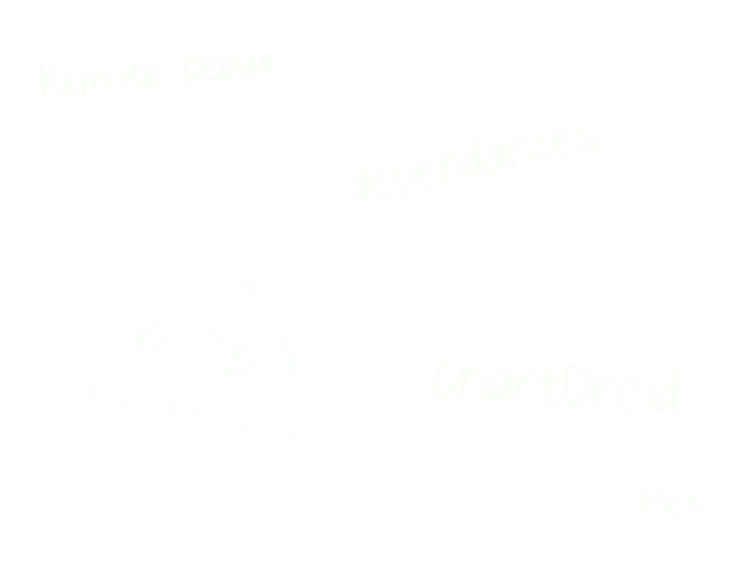 Remote Debug
dépendances
our
mobile
experience
ChartDroid
Flex